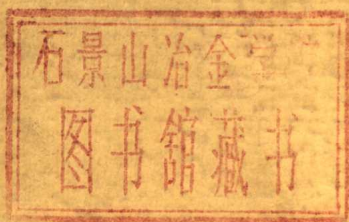 石景山冶金学
图书舘藏书